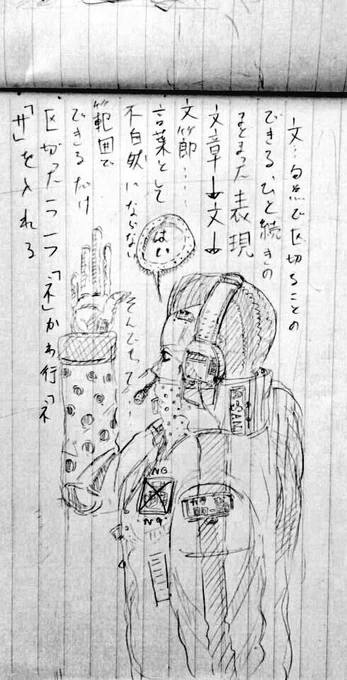 文…句点で区切ることの
できる、ひと続きの
まとまった表現
文章→文→
文節…
言葉として
不自然にならない
範囲で
できるだけ
区切った一つ一つ
「ネ」かわ行「ネ
「サ」を入れろ
はい
NISSAN
NG